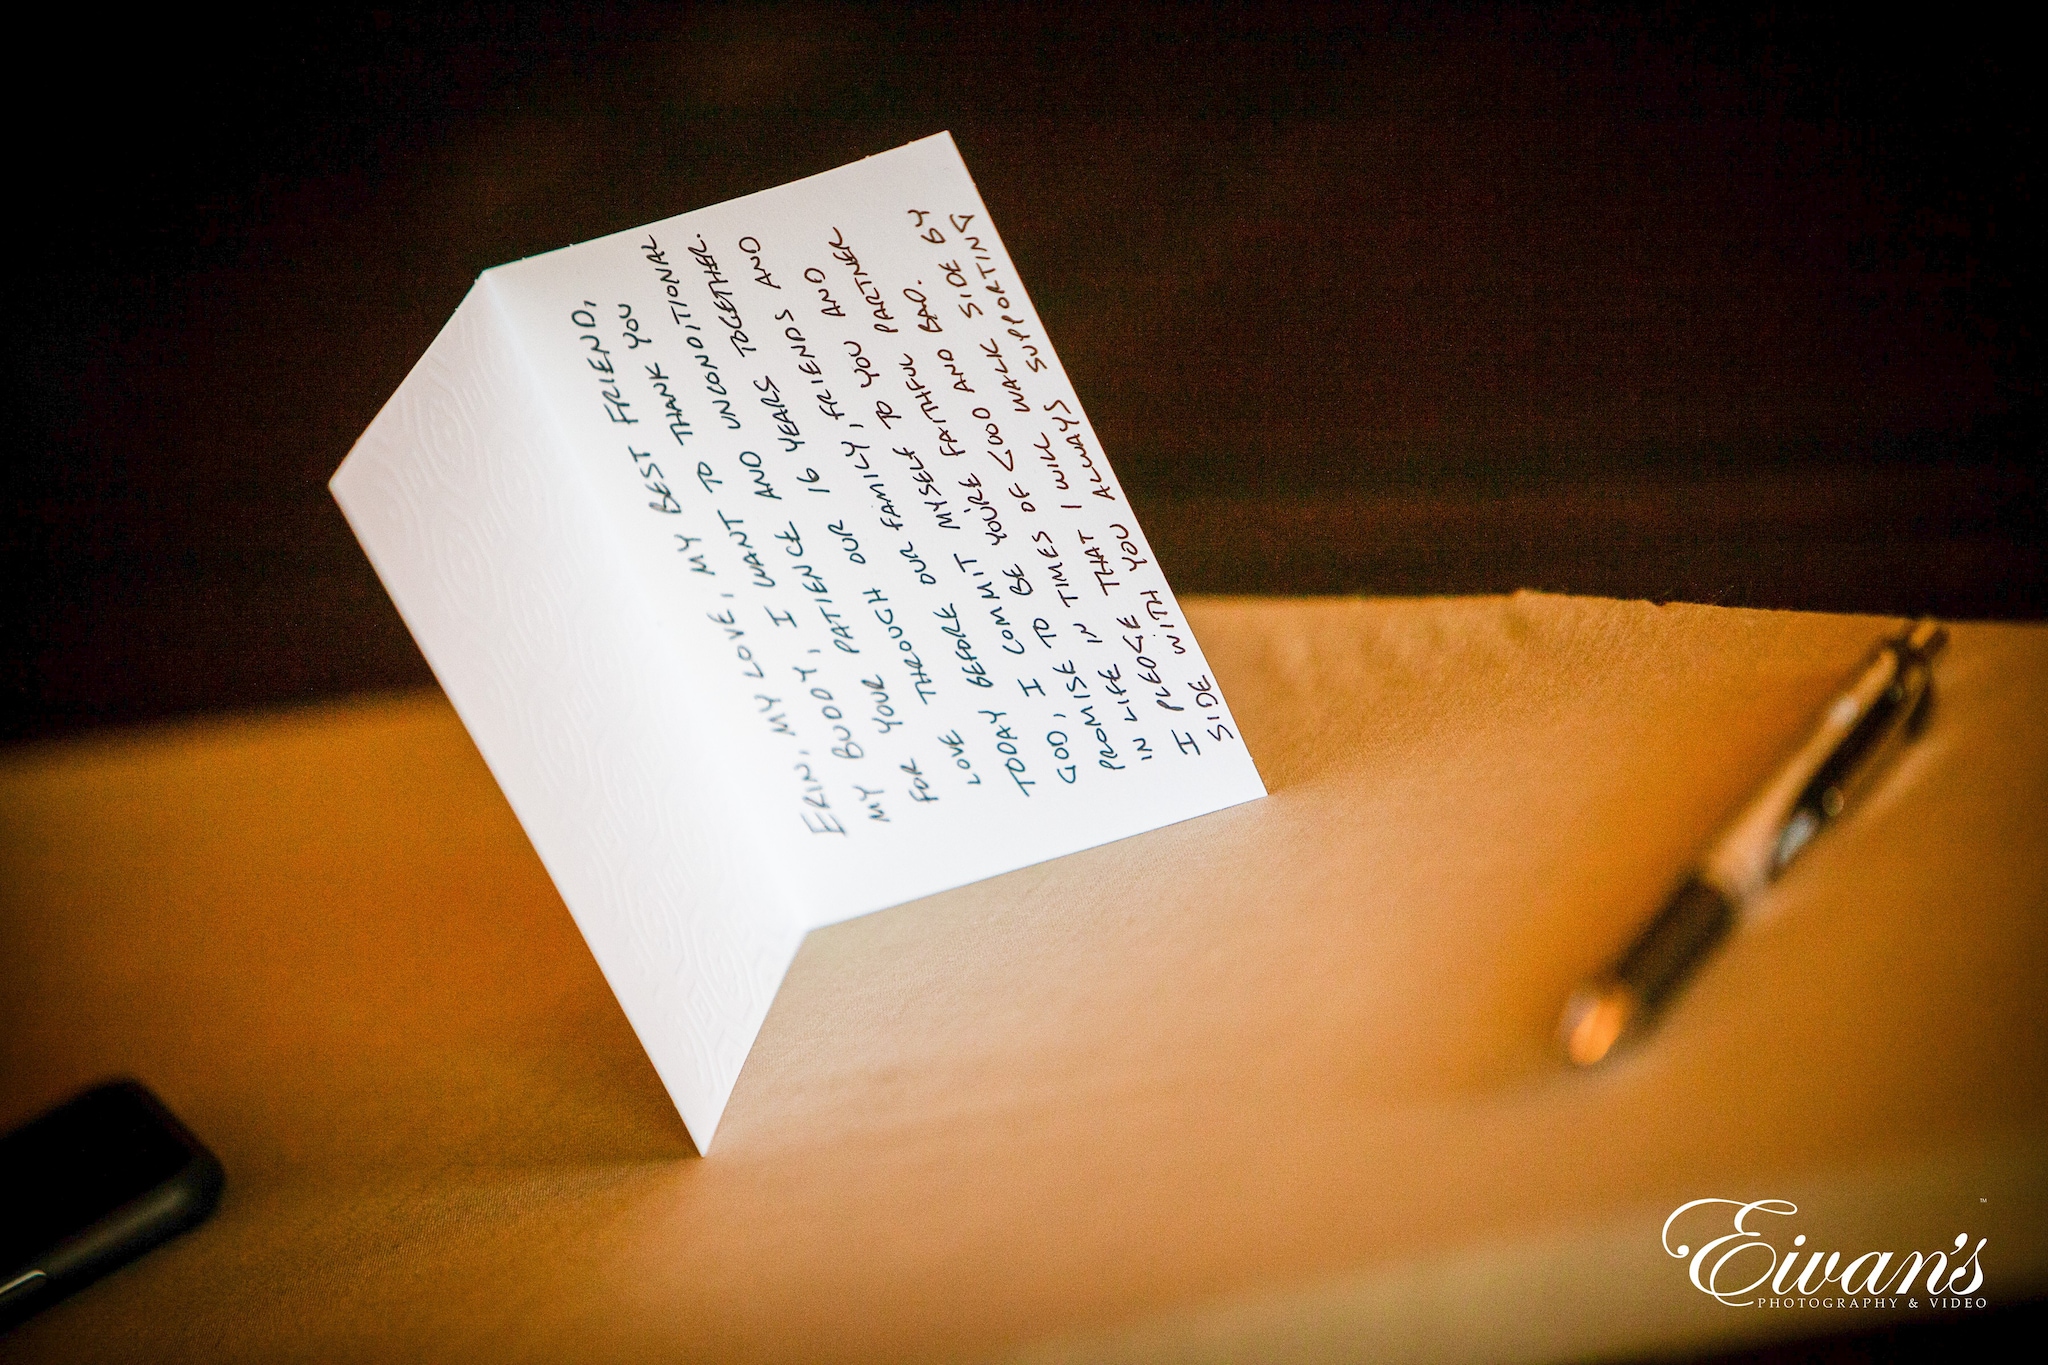 ERIN, MY LOVE, MY BEST FRIEND,
MY BUDDY, I WANT TO THANK YOU
FOR YOUR PATIENCE AND UNCONDITIONAL
LOVE THROUGH OUR 16 YEARS TOGETHER.
TODAY BEFORE OUR FAMILY, FRIENDS AND
GOD, I COMMIT MYSELF TO YOU AND
PROMISE TO BE YOU'RE FAITHFUL PARTNER
IN LIFE IN TIMES OF GOOD AND BAD.
I PLEDGE THAT I WILL WALK SIDE BY
SIDE WITH YOU ALWAYS SUPPORTING
Eivan's™
PHOTOGRAPHY & VIDEO